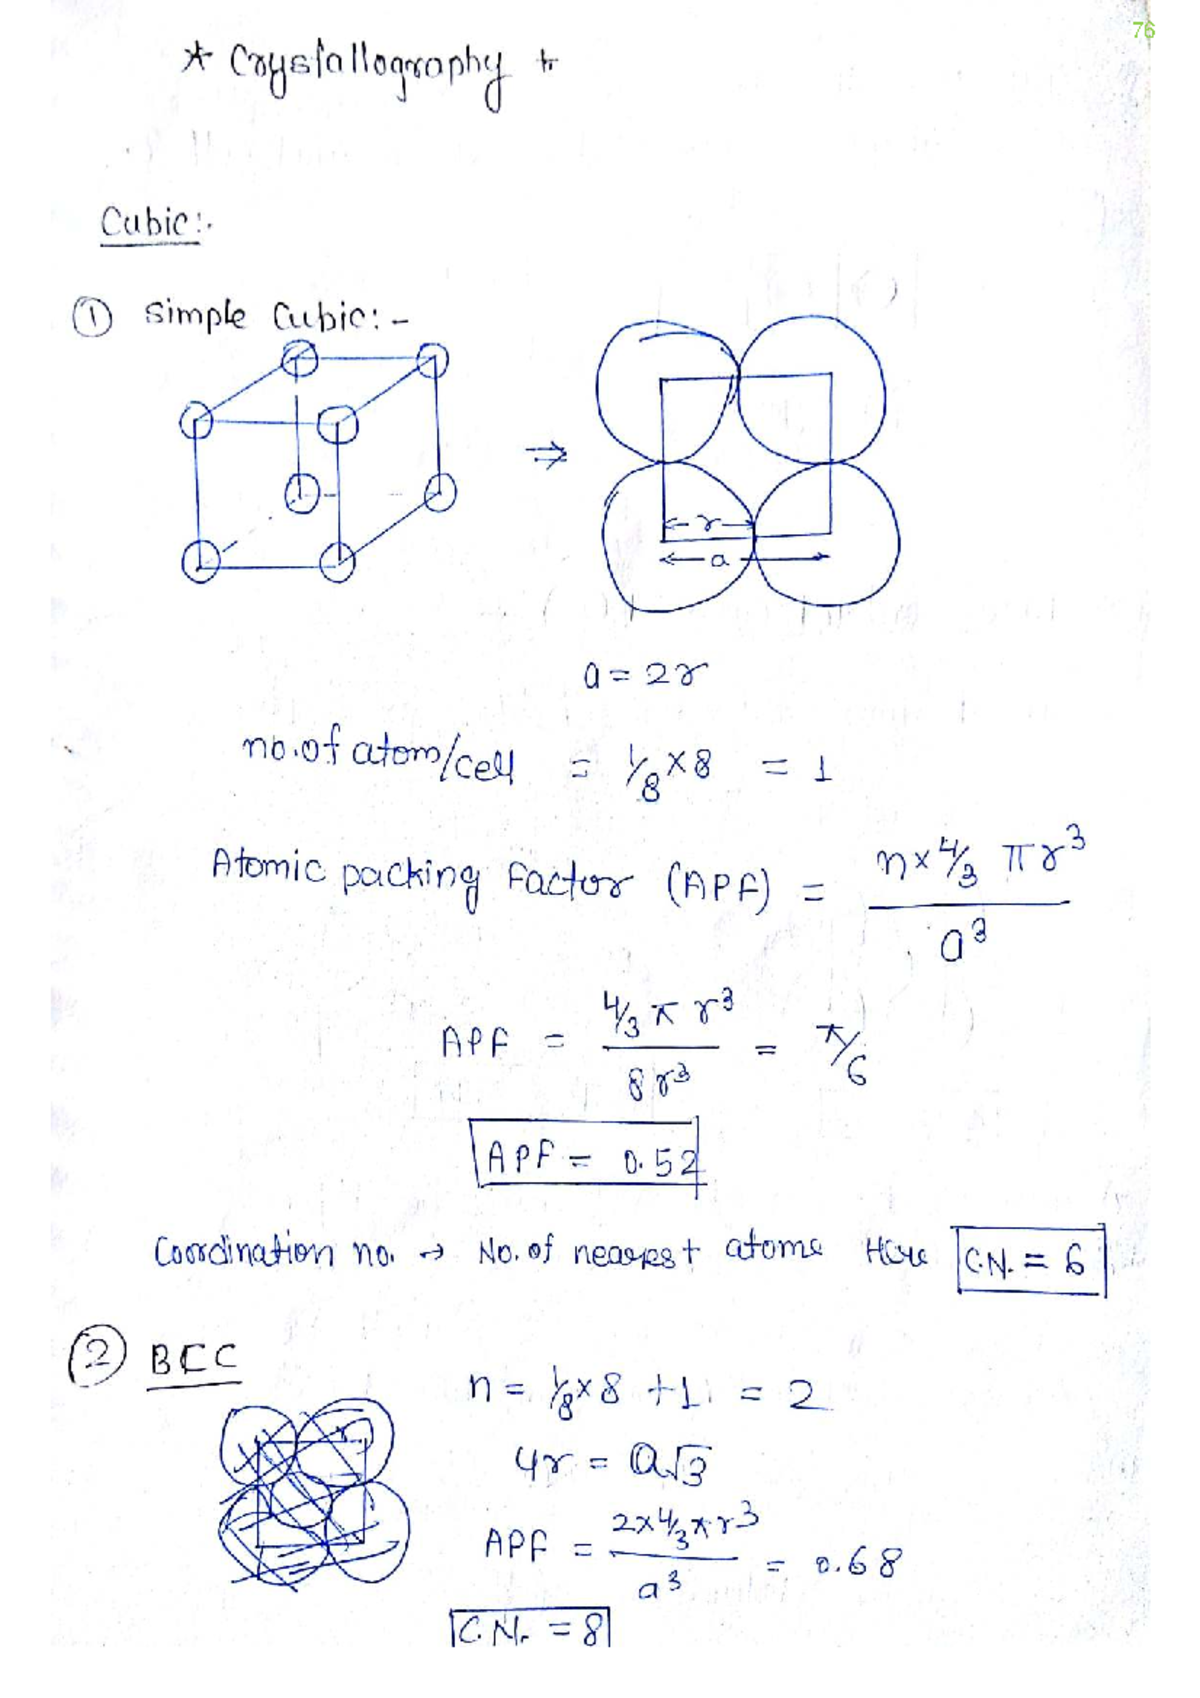 76
* Crystallography :-
Cubic:-
① Simple Cubic:-
r
a
a = 2r
no. of atom/cell = 1/8 × 8 = 1
Atomic packing Factor (APF) = n × 4/3 πr³ / a³
APF = 4/3 π r³ / 8r³ = π/6
APF = 0.52
Coordination no. → No. of nearest atoms Here C.N. = 6
② BCC
n = 1/8 × 8 + 1 = 2
4r = a√3
APF = 2×4/3 πr³ / a³ = 0.68
C.N. = 8